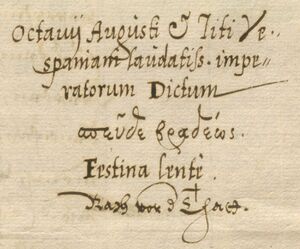 Octavij Augusti & Titi Ve-
spaniani laudatiss. impe-
ratorum Dictum
σπεῦδε βραδέως.
Festina lentè.